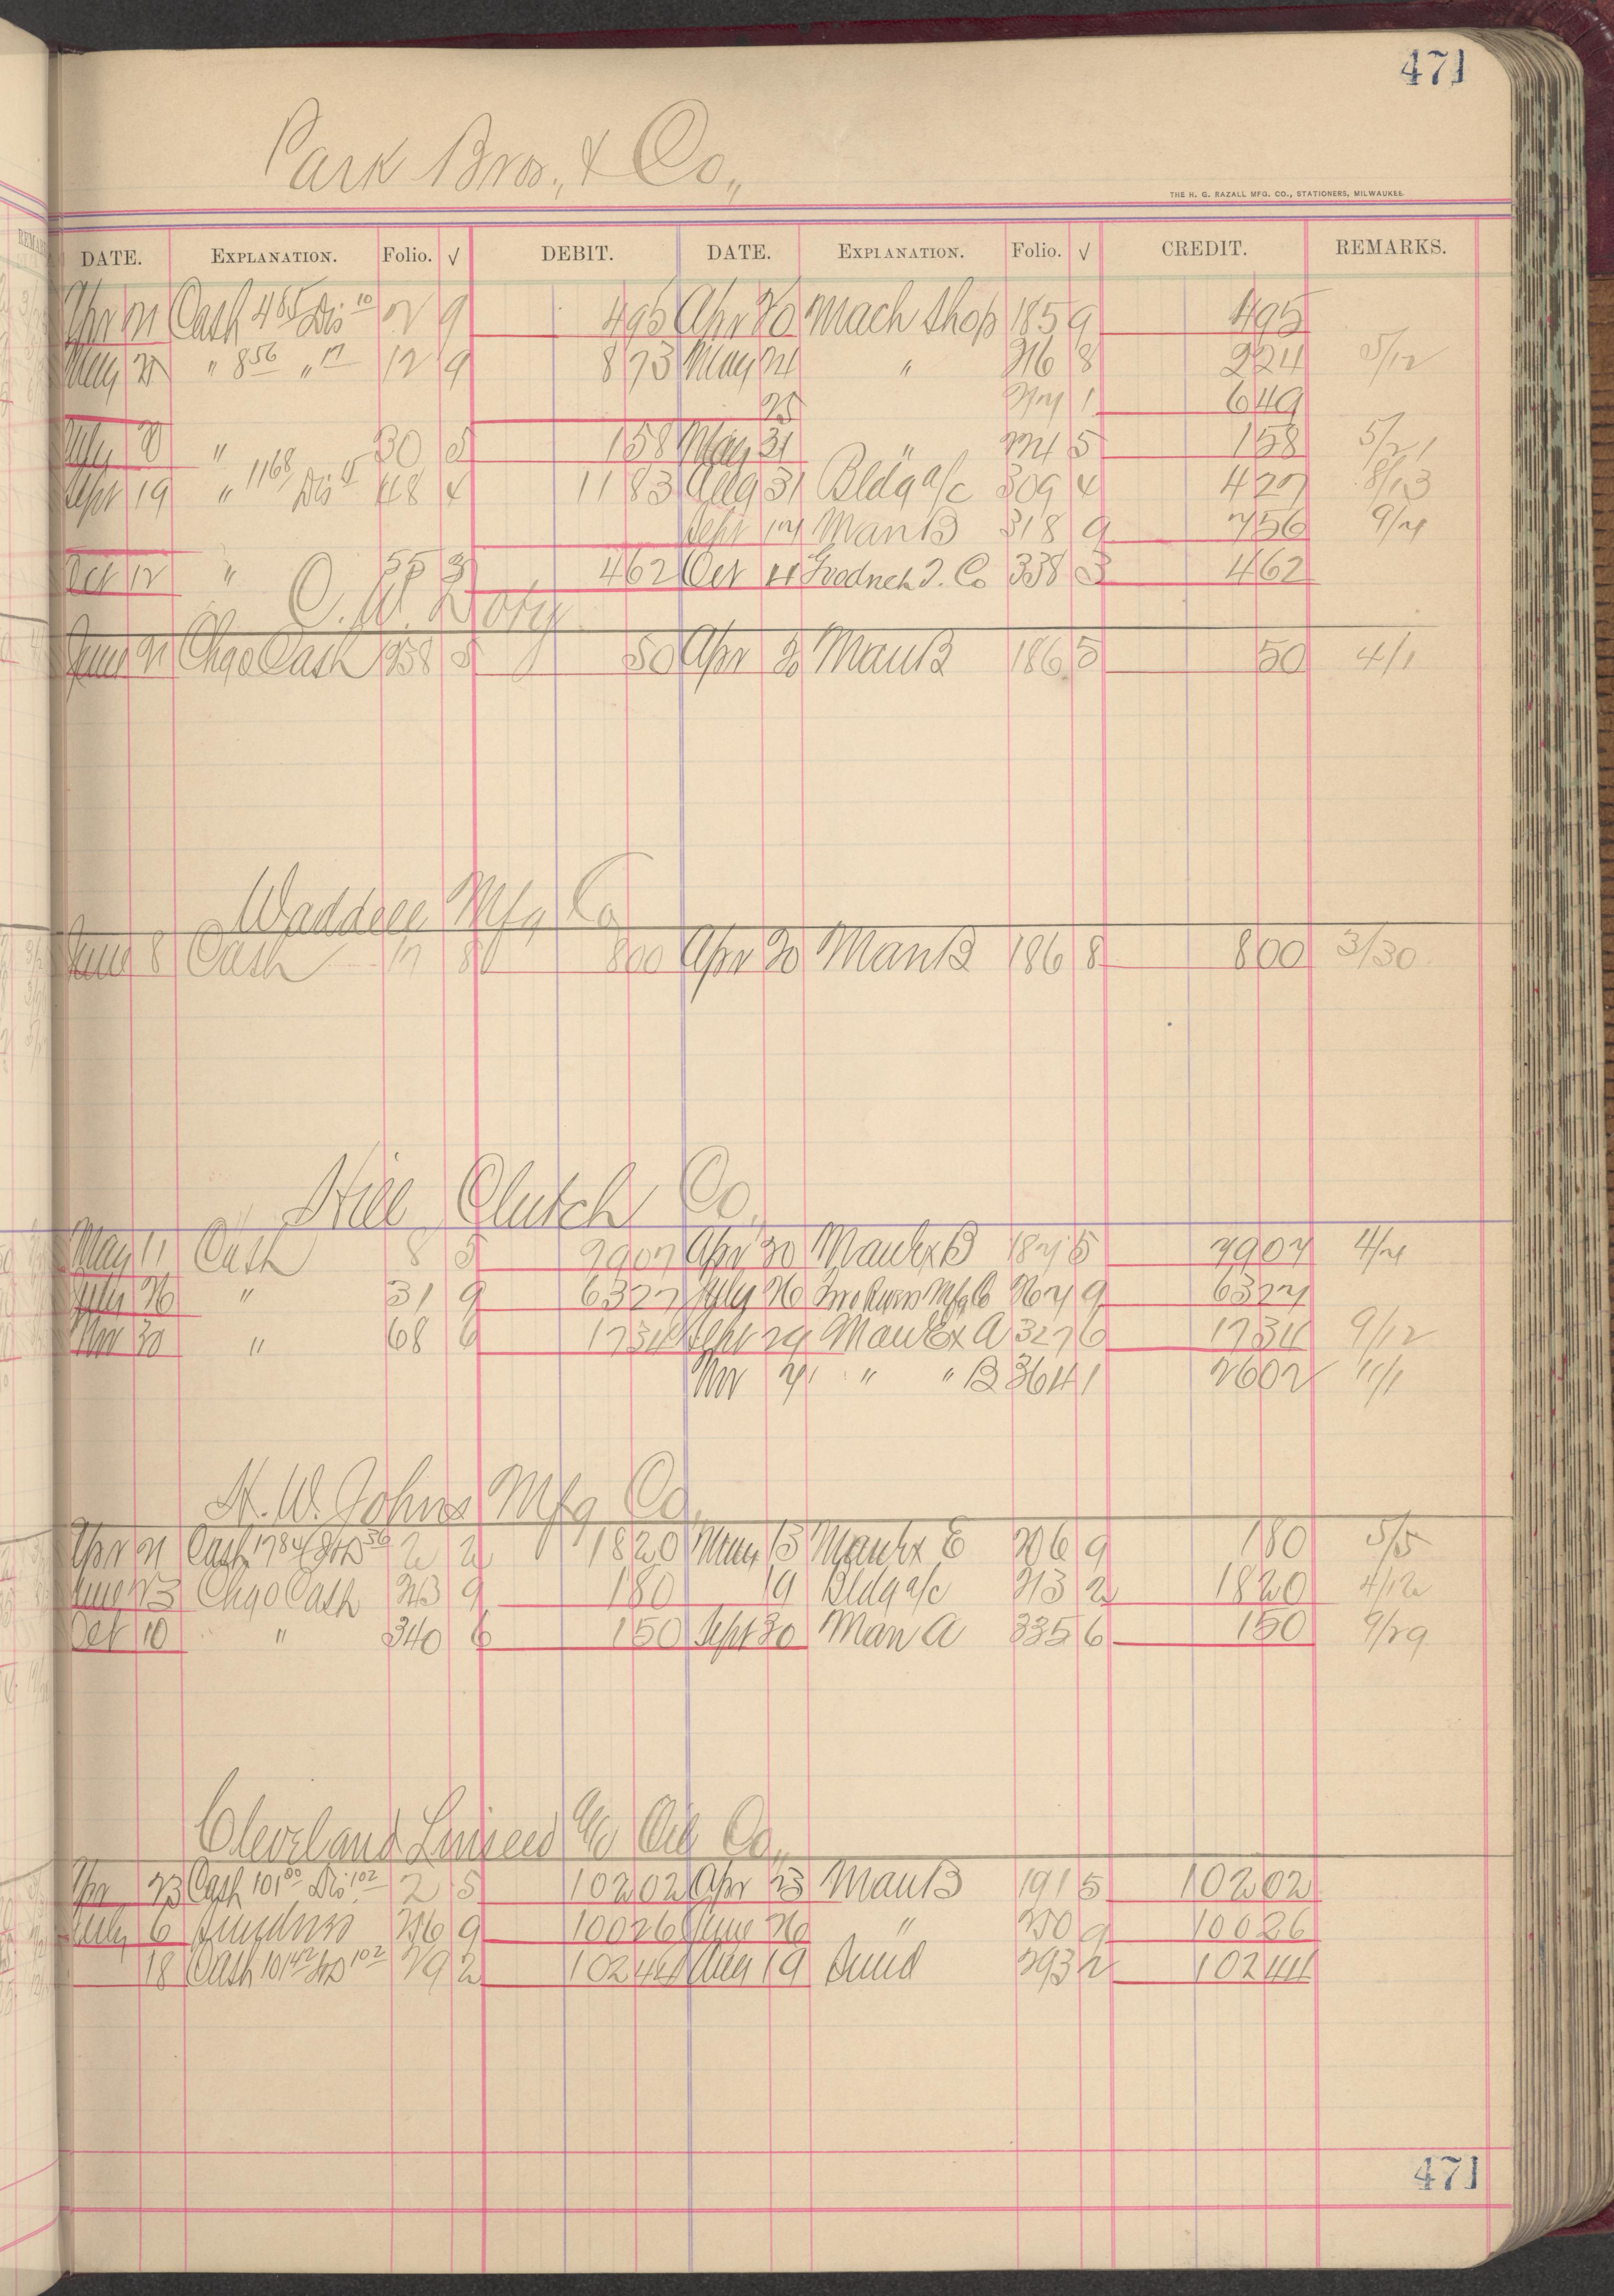 471
Park Bros., & Co.,
THE H. G. RAZALL MFG. CO., STATIONERS, MILWAUKEE.
DATE. EXPLANATION. Folio. √ DEBIT. DATE. EXPLANATION. Folio. √ CREDIT. REMARKS.
Apr 21 Cash 485 Dis 10 2 9 495 Apr 20 Mach Shop 185 9 495
May 21 " 856 " 17 12 9 873 May 24 " 216 8 224 5/12
25 1 649
July " 30 5 158 May 31 " 224 5 158 5/21
Sept 19 " 1168 Dis 15 48 4 1183 Aug 31 Bldg a/c 309 4 427 8/13
Sept 14 Man B 318 9 756 9/4
Oct 12 " 55 3 462 Oct 338 3 462
C. W. Doty
June 21 Chgo Cash 258 5 50 Apr 20 Man B 186 5 50 4/1
Waddell Mfg Co
June 8 Cash 17 8 800 Apr 20 Man B 186 8 800 3/30
Hill Clutch Co.
May 11 Cash 8 5 2907 Apr 20 Manex B 187 5 2907 4/4
July 26 " 31 9 6327 July 26 Mfg Co 267 9 6327
Nov 30 " 68 6 1734 Sept 29 Man Ex A 327 6 1734 9/12
Nov 21 " " B 364 1 2602 11/1
H. W. Johns Mfg Co.
Apr 21 Cash 1784 36 2 2 1820 May 13 Manex E 206 9 180 5/5
June 23 Chgo Cash 243 9 180 19 Bldg a/c 213 2 1820 4/12
Oct 10 " 340 6 150 Sept 30 Man A 335 6 150 9/29
Cleveland Linseed Oil Co.,
Apr 23 Cash 101 00 Dis 1 02 2 5 10202 Apr 23 Man B 191 5 10202
July 6 Sundries 256 9 10026 June 26 " 250 9 10026
18 Cash 101 42 1 02 29 2 10244 Aug 19 Sund 293 2 10244
471